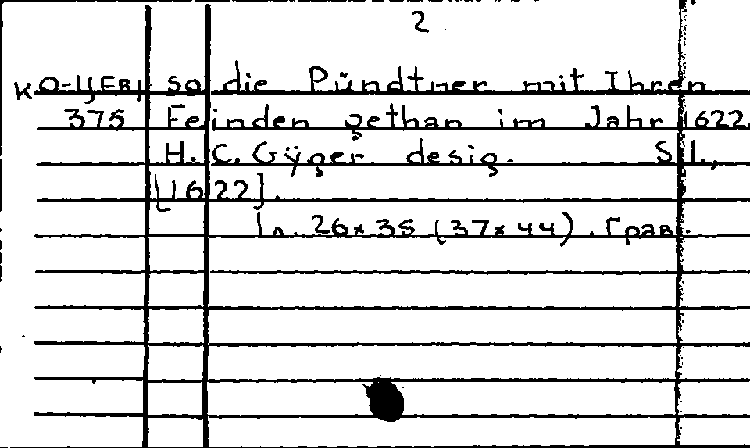 2
К О-Ч/ЕВР so die Pündtner mit Ihren
375 Feinden gethan im Jahr 1622.
H. C. Gÿger desig. S.l.,
[1622].
1 л. 26×35 (37×44). Грав.